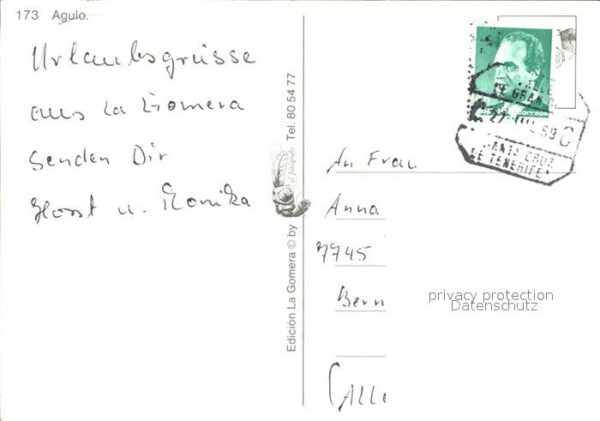 173 Agulo.
Urlaubsgrüsse
aus La Gomera
senden Dir
Horst u. Monika
Edición La Gomera © by
Tel. 80 54 77
correos
27
SANTA CRUZ
DE TENERIFE
An Frau
Anna
7745
Bern
privacy protection
Datenschutz